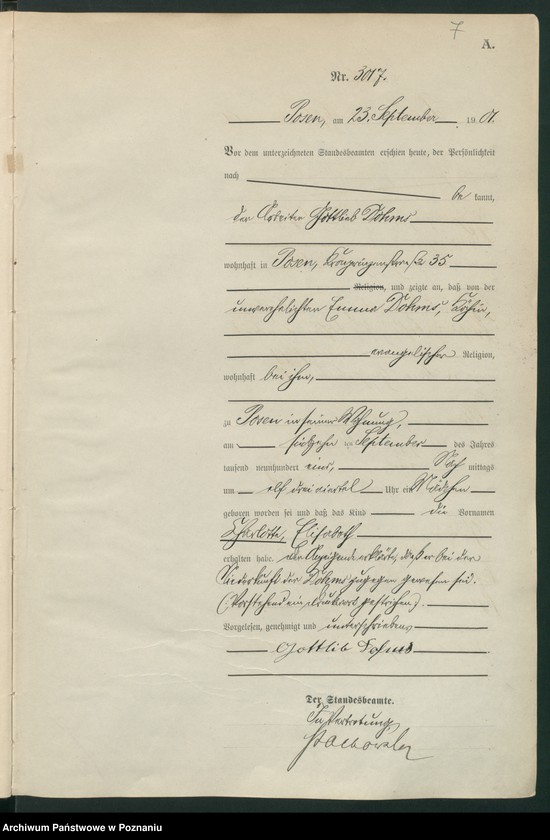 7
A.
Nr. 3017.
Posen, am 23. September 1901.
Vor dem unterzeichneten Standesbeamten erschien heute, der Persönlichkeit
nach
be kannt,
der Arbeiter Gottlieb Dohms
wohnhaft in Posen, 35
Religion, und zeigte an, daß von der
unverehelichten Emma Dohms, Köchin,
evangelischer Religion,
wohnhaft bei ihm,
zu Posen in seiner Wohnung,
am siebzehn ten September des Jahres
tausend neunhundert eins, Nach mittags
um elf dreiviertel Uhr ein Mädchen
geboren worden sei und daß das Kind die Vornamen
Charlotte, Elisabeth
erhalten habe. Der Anzeigende erklärte, daß er bei der
Niederkunft der Dohms zugegen gewesen sei.
(Vorstehend ein Druckwort gestrichen).
Vorgelesen, genehmigt und unterschrieben
Gottlib Dohms
Der Standesbeamte.
In Vertretung
Archiwum Państwowe w Poznaniu